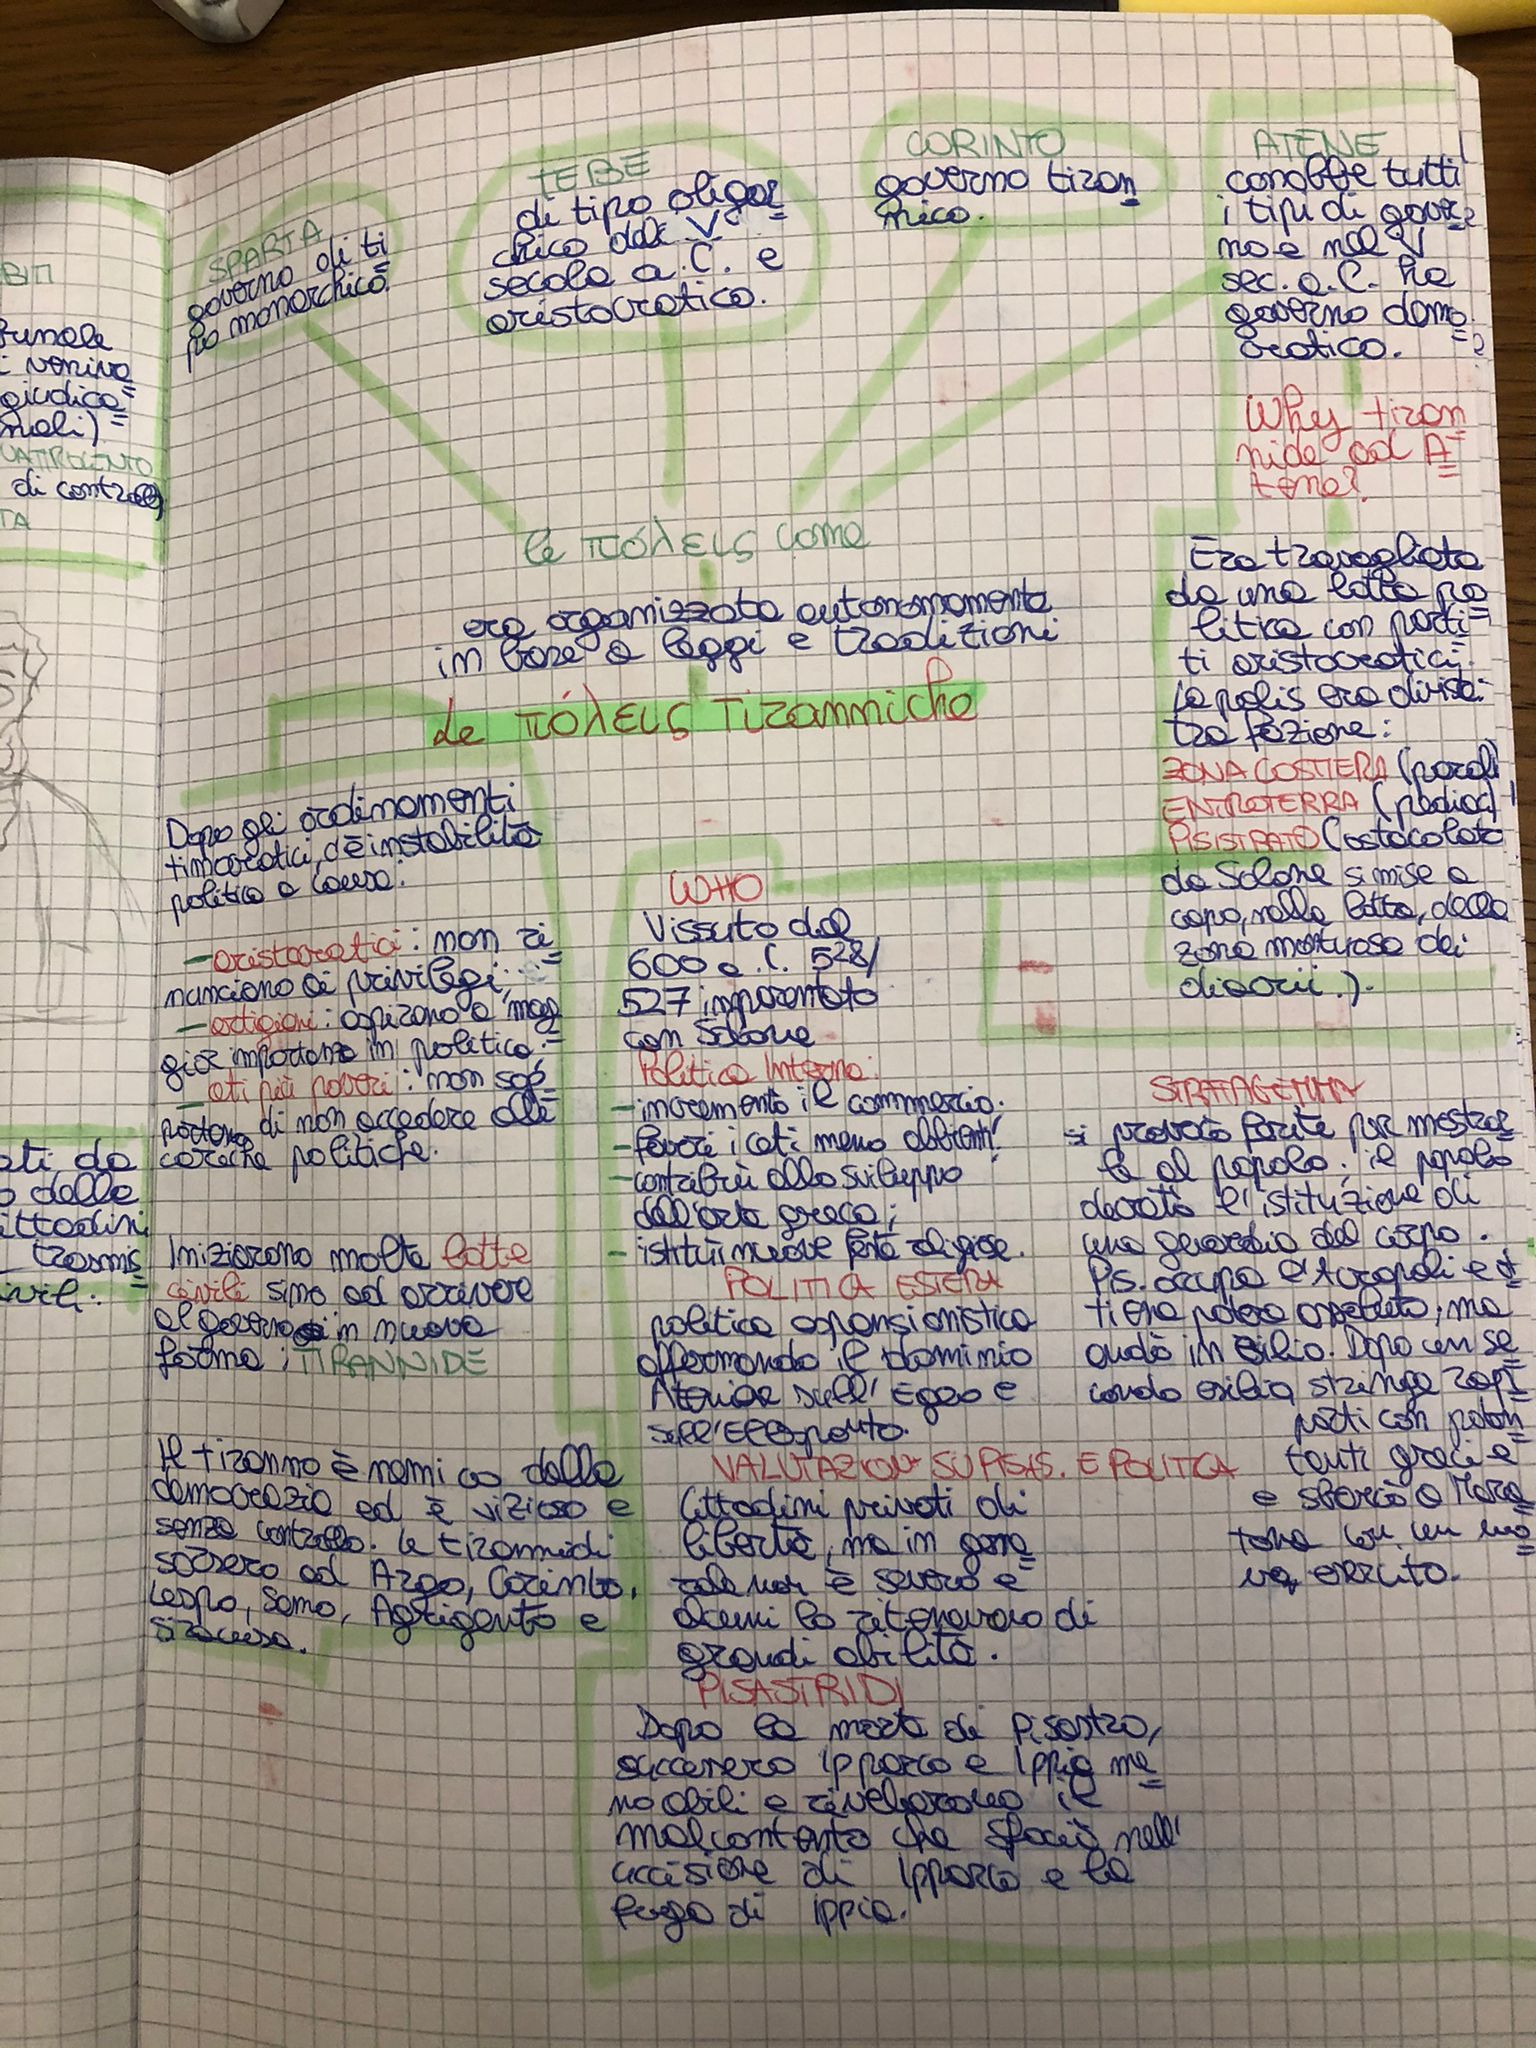 SPARTA
governo di ti
po monarchico
TEBE
di tipo oligar
chico dal V
secolo a.C. e
aristocratico.
CORINTO
governo tiran
nico.
ATENE
conobbe tutti
i tipi di gover
no e nel V
sec. a.C. ha
governo demo
cratico.
Why tiran
nide ad A
tene?
le πόλεις come
era organizzata autonomamente
in base a leggi e tradizioni
Le πόλεις Tiranniche
Era travagliata
da una lotta po
litica con parti
ti aristocratici.
la polis era divisa
tra fazione:
ZONA COSTIERA (parali)
ENTROTERRA (pediaci)
PISISTRATO (ostacolato
da Solone si mise a
capo, nella lotta, della
zona montuosa dei
diacrii.).
Dopo gli ordinamenti
timocratici, c'è instabilità
politica a causa:
- aristocratici: non ri
nunciano ai privilegi;
- artigiani: aspirano a mag
gior importanza in politica;
- ceti più poveri: non sop
portano di non accedere alle
cariche politiche.
Iniziarono molte lotte
civili sino ad arrivare
al governo in nuova
forma: TIRANNIDE
Il tiranno è nemico della
democrazia ed è vizioso e
senza controllo. Le tirannidi
sorsero ad Argo, Corinto,
Lesbo, Samo, Agrigento e
Siracusa.
WHO
Vissuto dal
600 a.C. 528/
527 imparentato
con Solone
Politica Interna:
- incremento il commercio.
- favorì i ceti meno abbienti
- contribuì allo sviluppo
dell'arte greca;
- istituì nuove feste religiose.
POLITICA ESTERA
politica espansionistica
affermando il dominio
Ateniese sull'Egeo e
sull'Ellesponto.
VALUTAZIONE SU PISAS. E POLITICA
Cittadini privati di
libertà, ma in gene
rale non è severo e
alcuni lo ritenevano di
grandi abilità.
PISASTRIDI
Dopo la morte di Pisastro,
succesero Ipparco e Ippia me
no abili e rivelarono il
malcontento che sfociò nell'
uccisione di Ipparco e la
fuga di Ippia.
STRATAGEMMA
si provocò ferite per mostrar
le al popolo; il popolo
decretò l'istituzione di
una guardia del corpo.
Pis. occupa l'Acropoli e ot
tiene potere assoluto, ma
andò in esilio. Dopo un se
condo esilio, stringe rap
porti con poten
tanti greci e
e sbarcò a Mara
tona con un
esercito.
giudica
di contro
ittadini